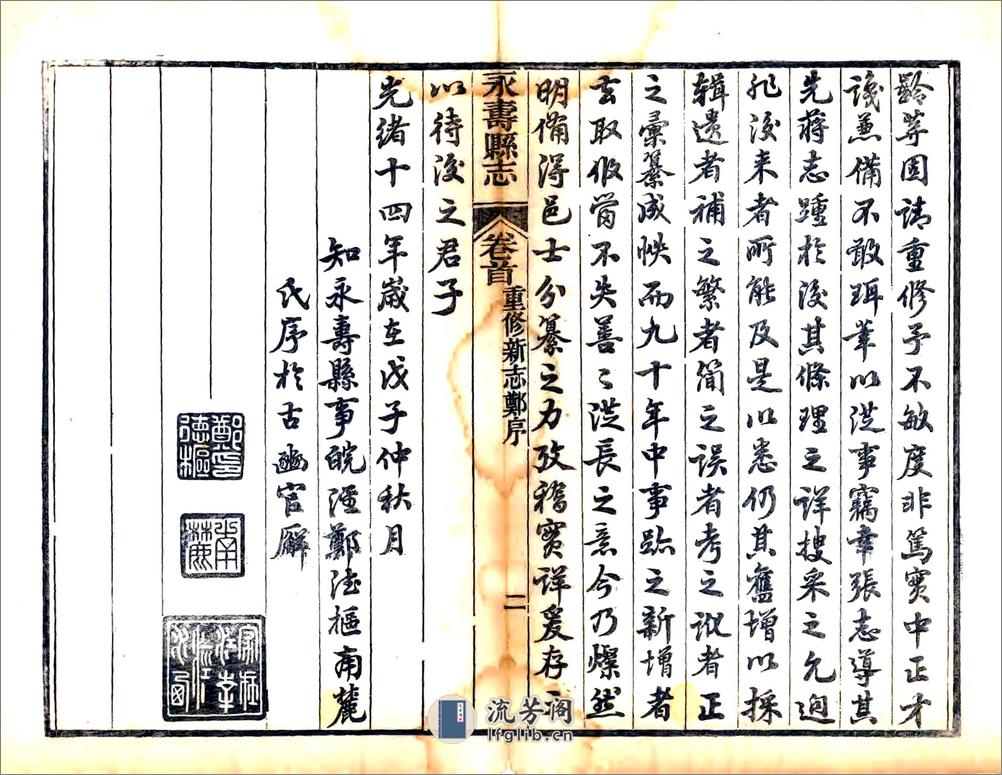 齡等固請重修予不敏度非篤實中正才
識兼備不敢珥筆以從事竊幸張志導其
先蔣志踵於後其條理之詳搜采之允迥
非後来者所能及是以悉仍其舊增以採
輯遺者補之繁者简之误者考之訛者正
之彙纂成帙而九十年中事跡之新增者
去取似尚不失善〻從長之意今乃燦然
明備得邑士分纂之力攷稽實詳爰存之
永壽縣志
卷首
重修新志鄭序
二
以待後之君子
光緒十四年歲在戊子仲秋月
知永壽縣事皖涇鄭德樞南麓
氏序於古豳官廨
鄭印德樞
南麓
流芳阁
lfglib.cn